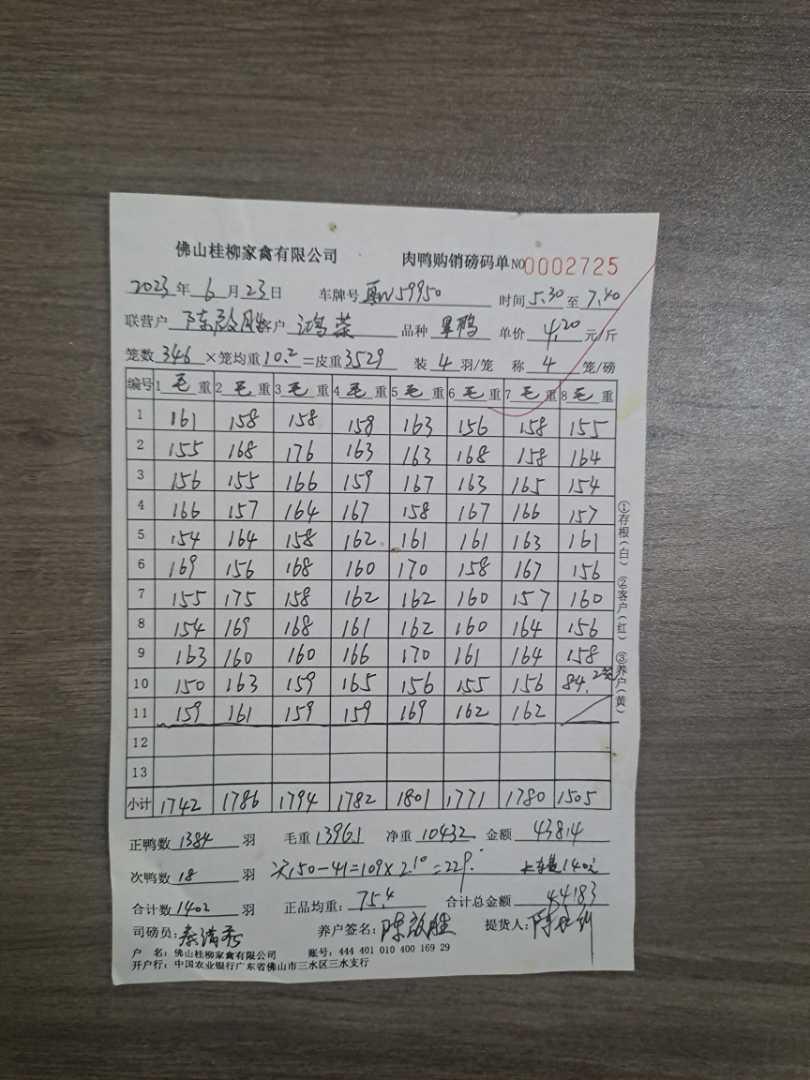 佛山桂柳家禽有限公司 肉鸭购销磅码单 NO 0002725
2023年6月23日 车牌号 59950 时间5.30至7.40
联营户 陈啟胜 客户 鸿荣 品种 鸭 单价 4.20 元/斤
笼数 346 ×笼均重 10.2 =皮重 3529 装 4 羽/笼 称 4 笼/磅
编号 1 毛 重 2 毛 重 3 毛 重 4 毛 重 5 毛 重 6 毛 重 7 毛 重 8 毛 重
1 161 158 158 158 163 156 158 155
2 155 168 176 163 163 168 158 164
3 156 155 166 159 167 163 165 154
4 166 157 164 167 158 167 166 157
5 154 164 158 162 161 161 163 161
6 169 156 168 160 170 158 167 156
7 155 175 158 162 162 160 157 160
8 154 169 168 161 162 160 164 156
9 163 160 160 166 170 161 164 158
10 150 163 159 165 156 155 156 84.2笼
11 159 161 159 159 169 162 162
12
13
小计 1742 1786 1794 1782 1801 1771 1780 1505
①存根(白) ②客户(红) ③养户(黄)
正鸭数 1384 羽 毛重 13961 净重 10432 金额 43814
次鸭数 18 羽 次150-41=109×2.10=229.
合计数 1402 羽 正品均重: 75.4 合计总金额 44183
司磅员: 养户签名: 陈啟胜 提货人:
户 名: 佛山桂柳家禽有限公司 账号: 444 401 010 400 169 29
开户行: 中国农业银行广东省佛山市三水区三水支行